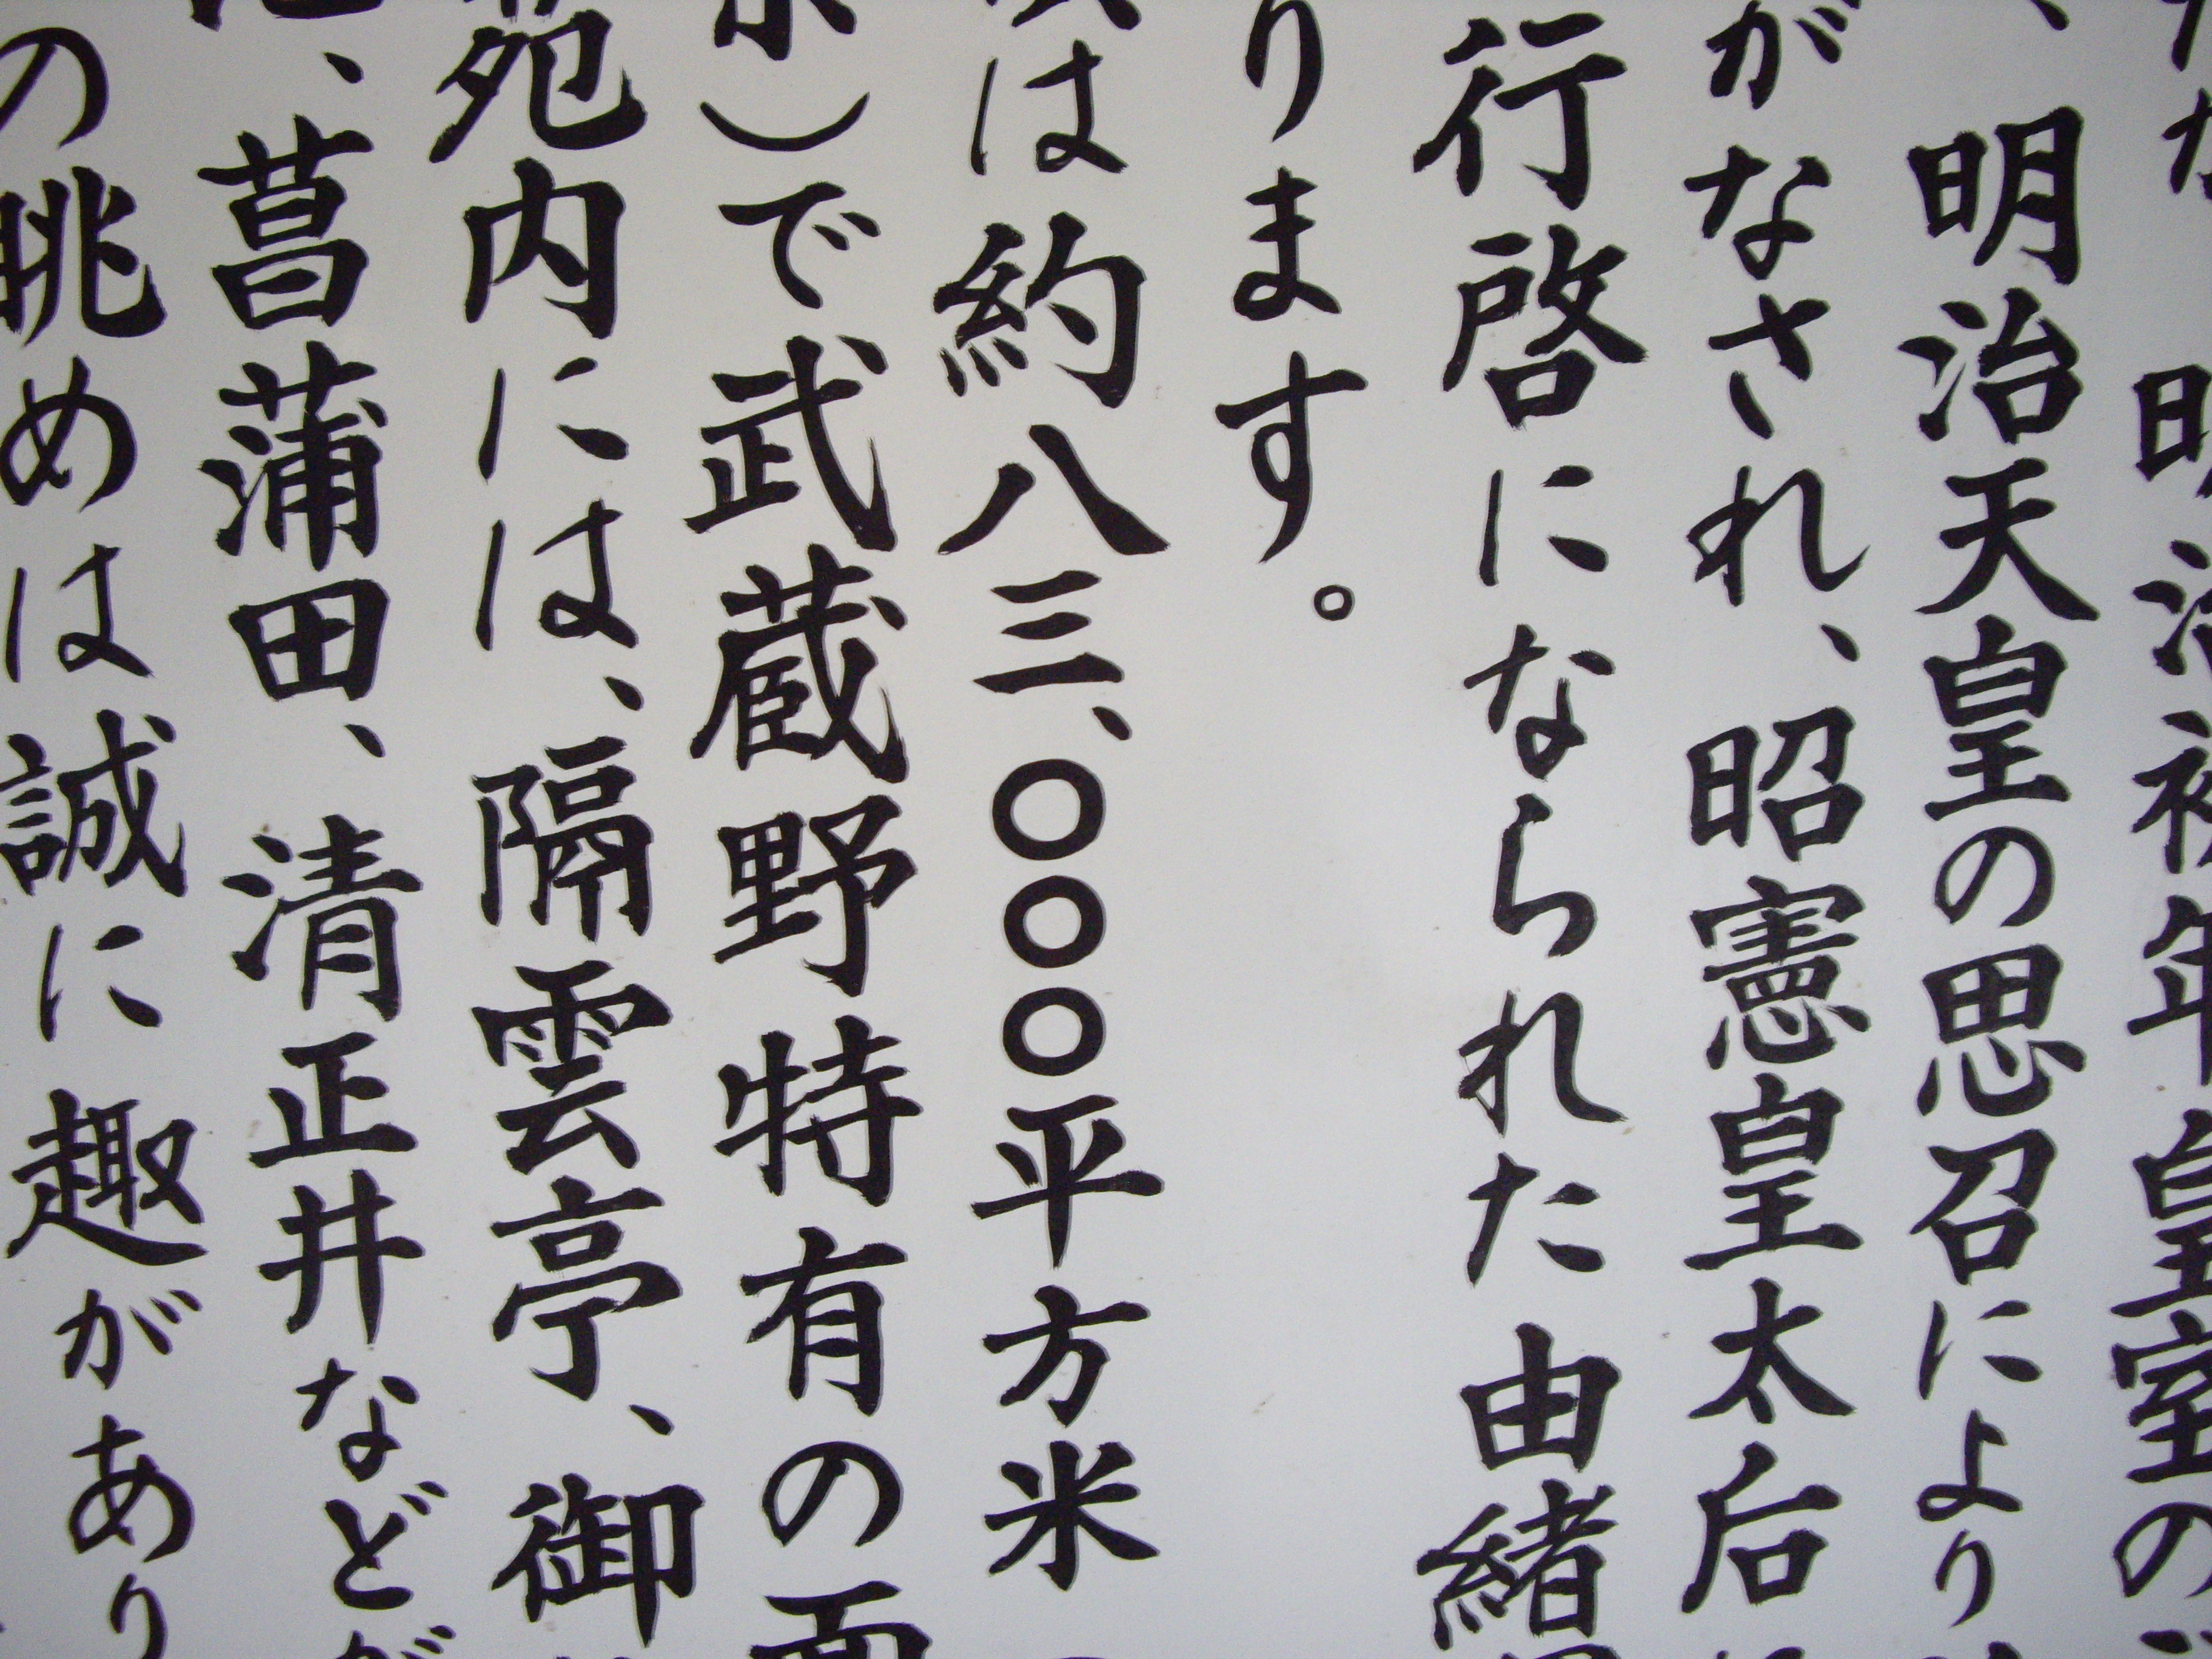 明治初年皇室の
明治天皇の思召により
がなされ、昭憲皇太后
行啓になられた由緒
ります。
は約八三、〇〇〇平方米
)で武蔵野特有の面
苑内には、隔雲亭、御
、菖蒲田、清正井などが
の眺めは誠に趣があり